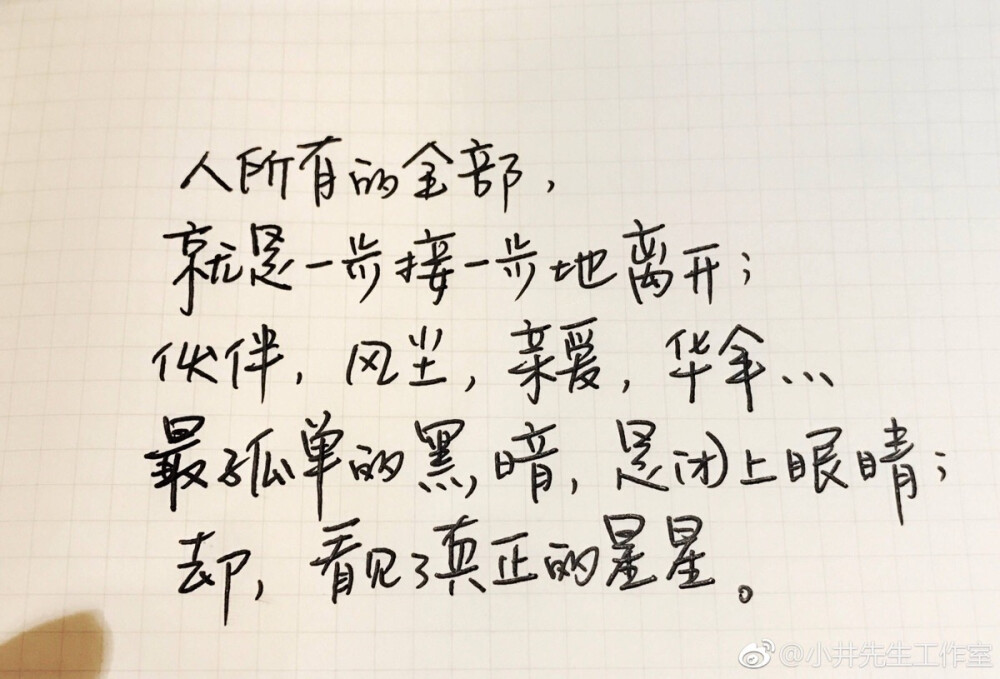 人所有的全部，
就是一步接一步地离开；
伙伴，风尘，亲爱，华伞…
最孤单的黑暗，是闭上眼睛；
却，看见了真正的星星。
@小井先生工作室